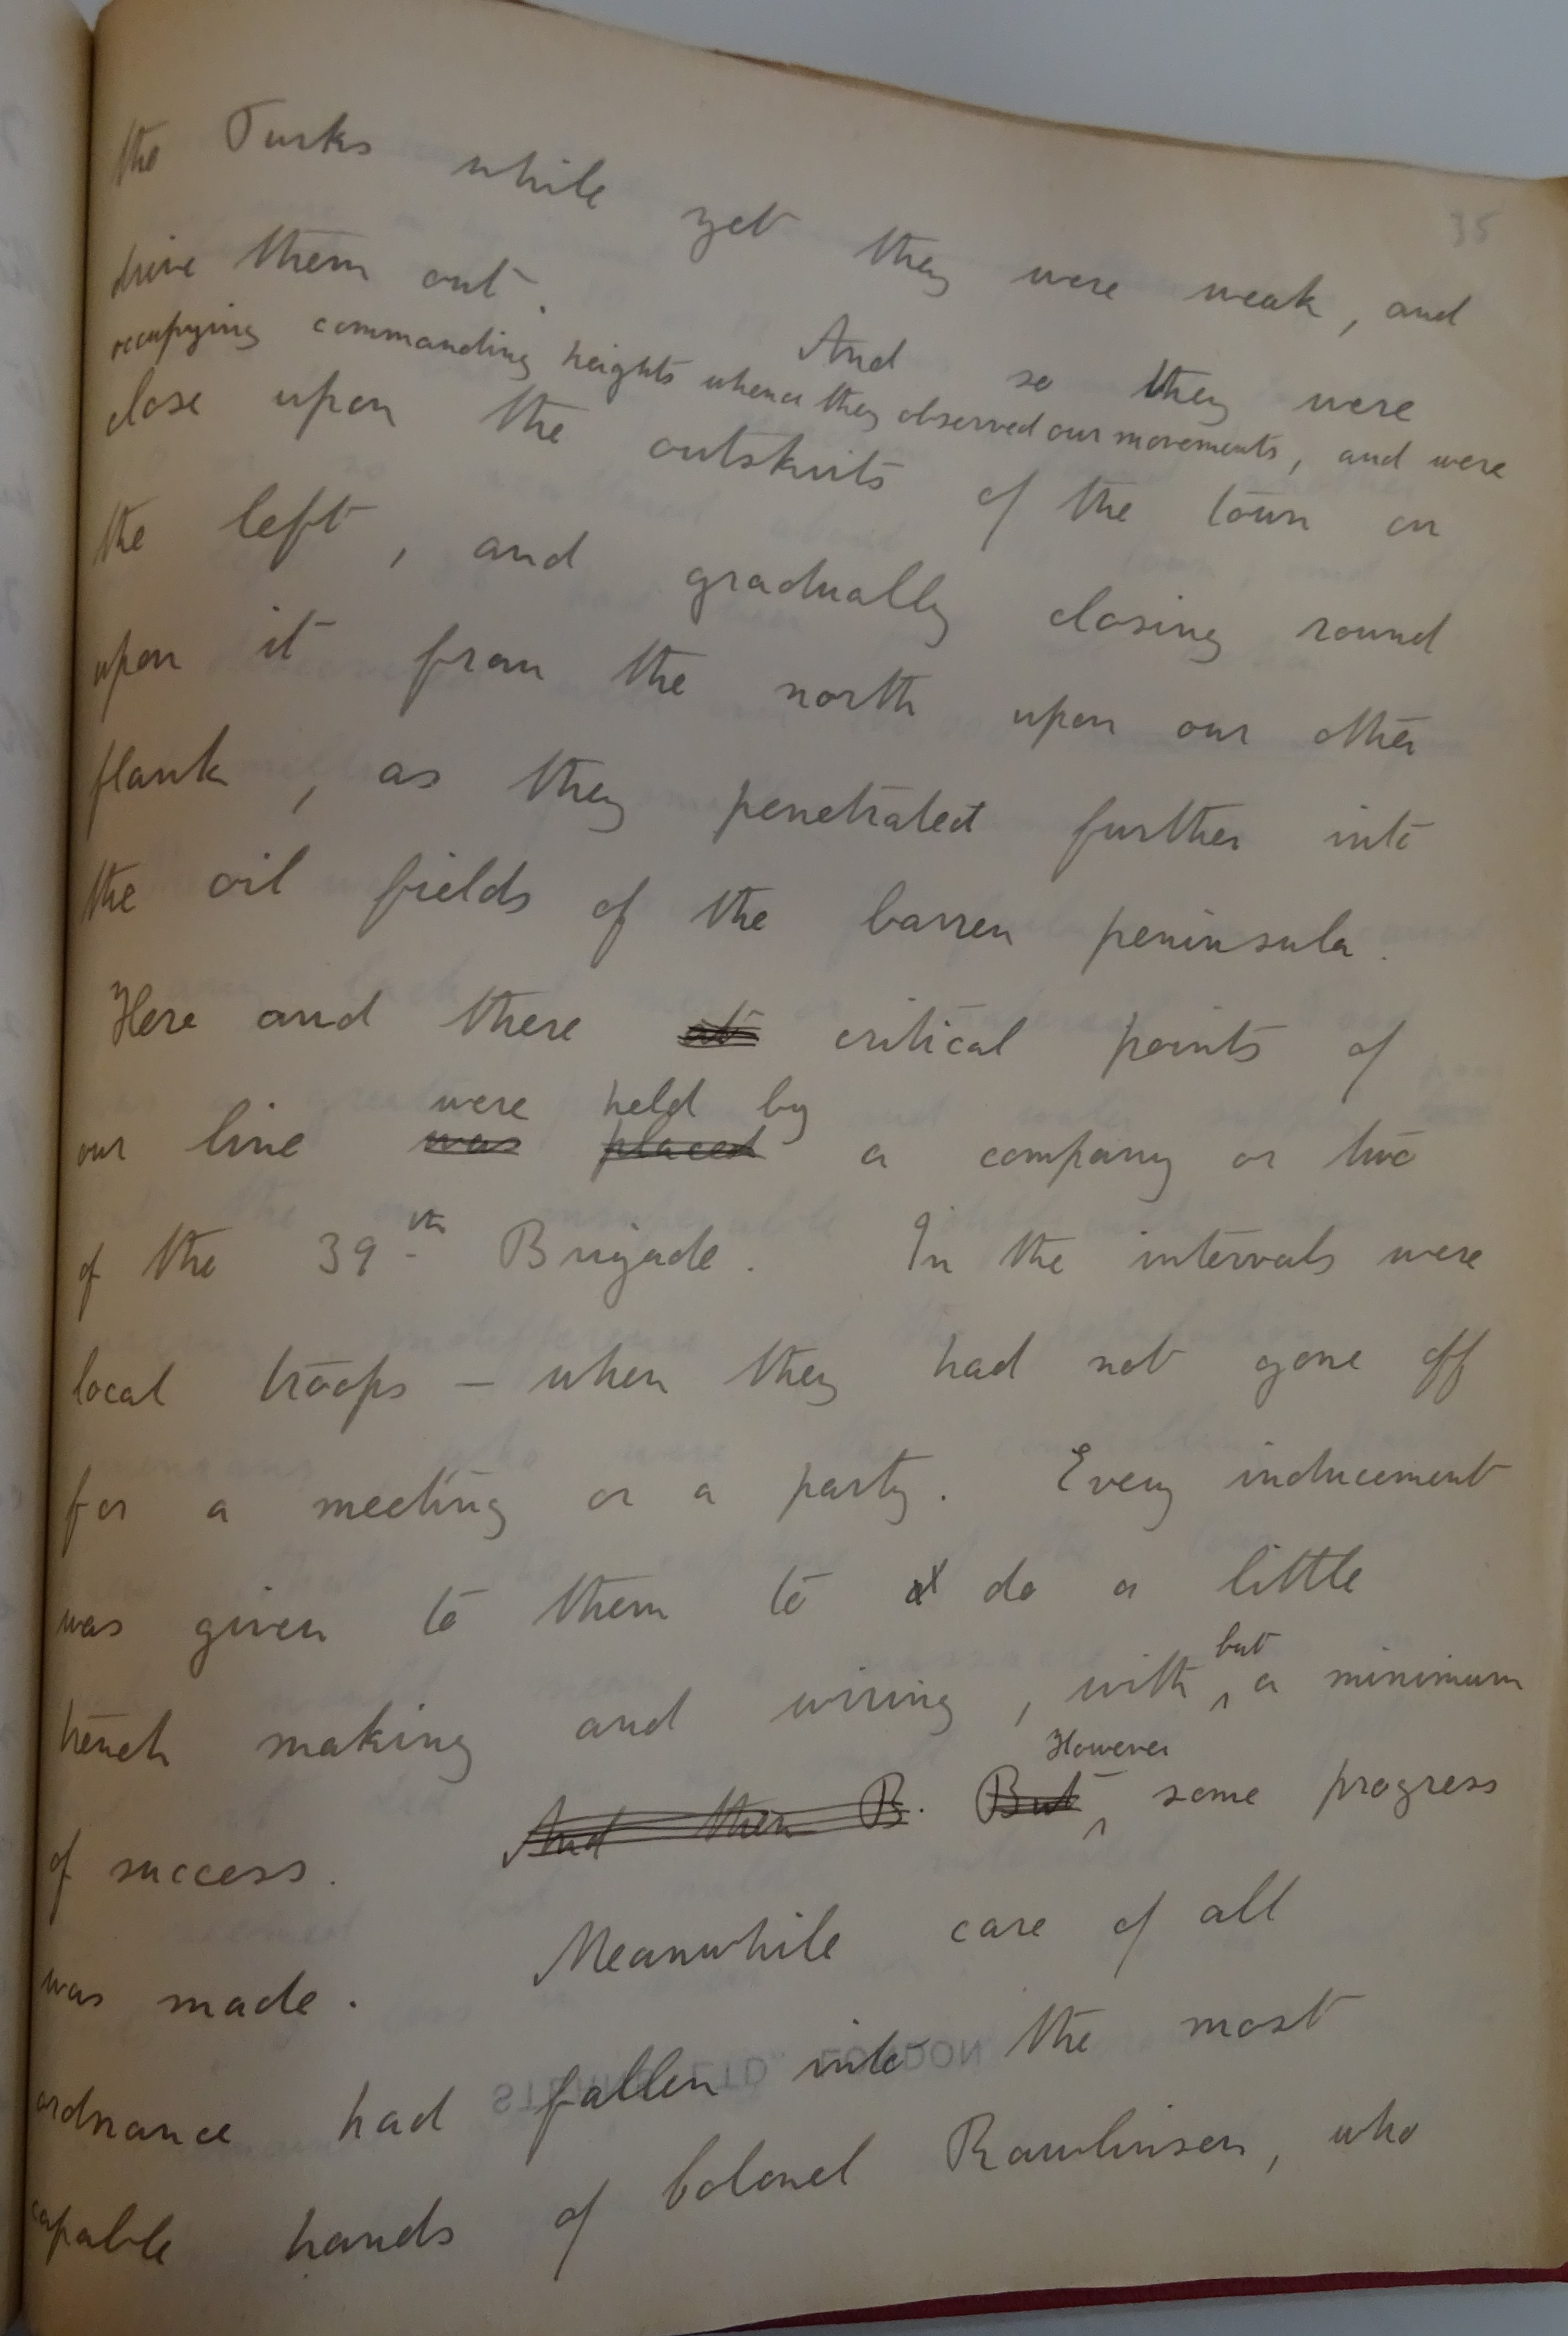 35
the Turks while yet they were weak, and
drive them out. And so they were
occupying commanding heights whence they observed our movements, and were
close upon the outskirts of the town on
the left, and gradually closing round
upon it from the north upon our other
flank, as they penetrated further into
the oil fields of the barren peninsula.
Here and there at critical points of
were held by
our line was placed a company or two
of the 39th Brigade. In the intervals were
local troops – when they had not gone off
for a meeting or a party. Every inducement
was given to them to do a little
but
trench making and wiring, with a minimum
However
of success. And then B. But some progress
was made. Meanwhile care of all
ordnance had fallen into the most
capable hands of Colonel Rawlinson, who